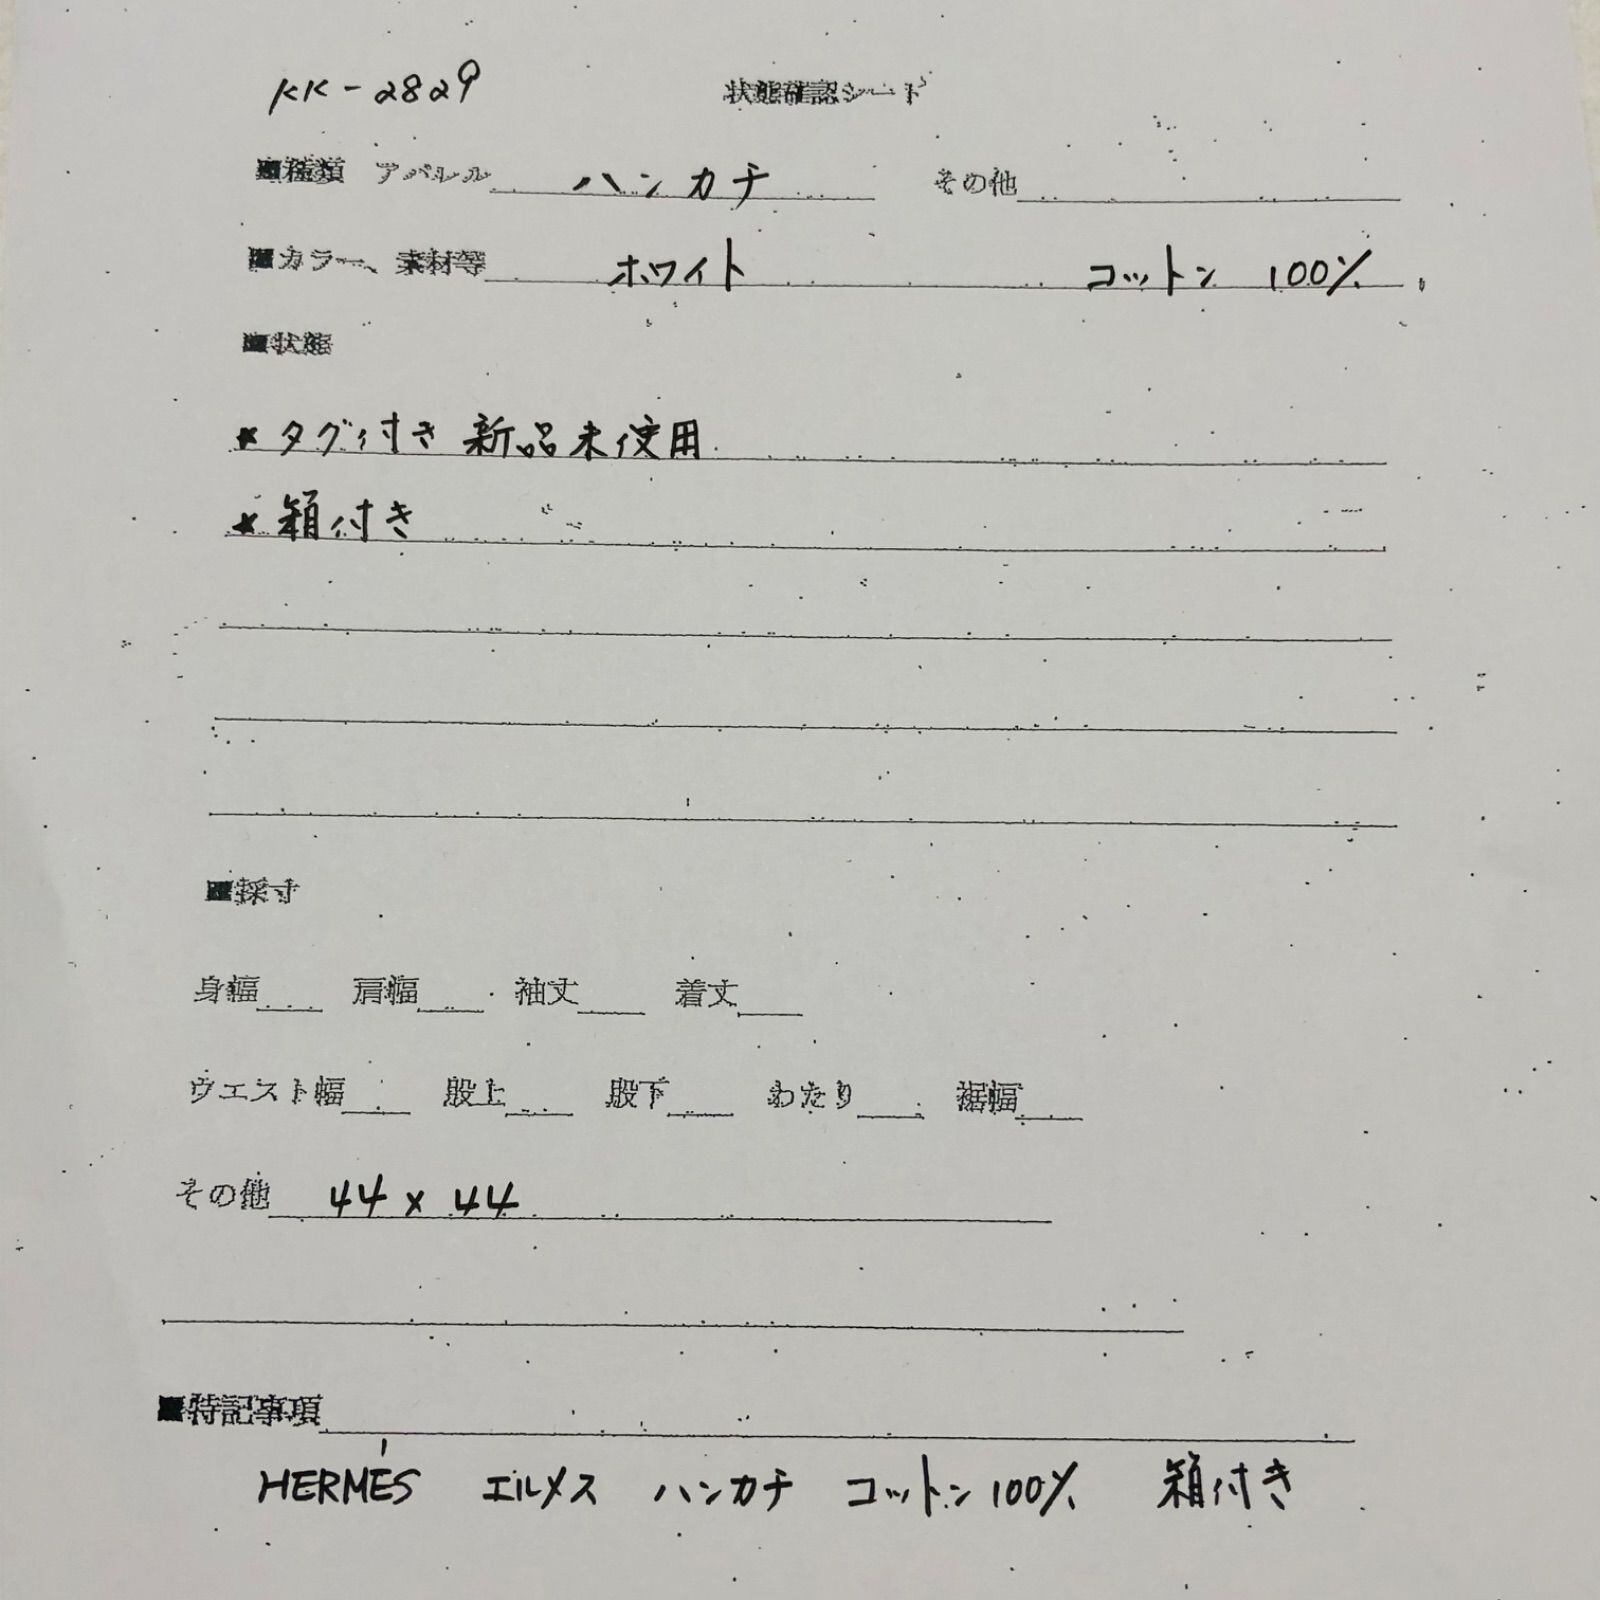 KK-2829 状態確認シート
■種類 アパレル ハンカチ その他
■カラー、素材等 ホワイト コットン 100%
■状態
* タグ付き 新品未使用
* 箱付き
■採寸
身幅 肩幅 袖丈 着丈
ウエスト幅 股上 股下 わたり 裾幅
その他 44 x 44
■特記事項
HERMÉS エルメス ハンカチ コットン 100% 箱付き